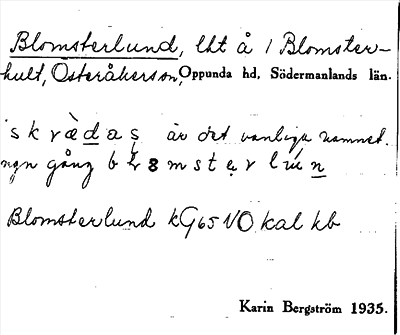 Blomsterlund, lht å 1 Blomster-
hult, Österåkers sn, Oppunda hd, Södermanlands län.
skrὰdas är det vanliga namnet.
ngn gång
Blomsterlund kG65 NO kal kb
Karin Bergström 1935.